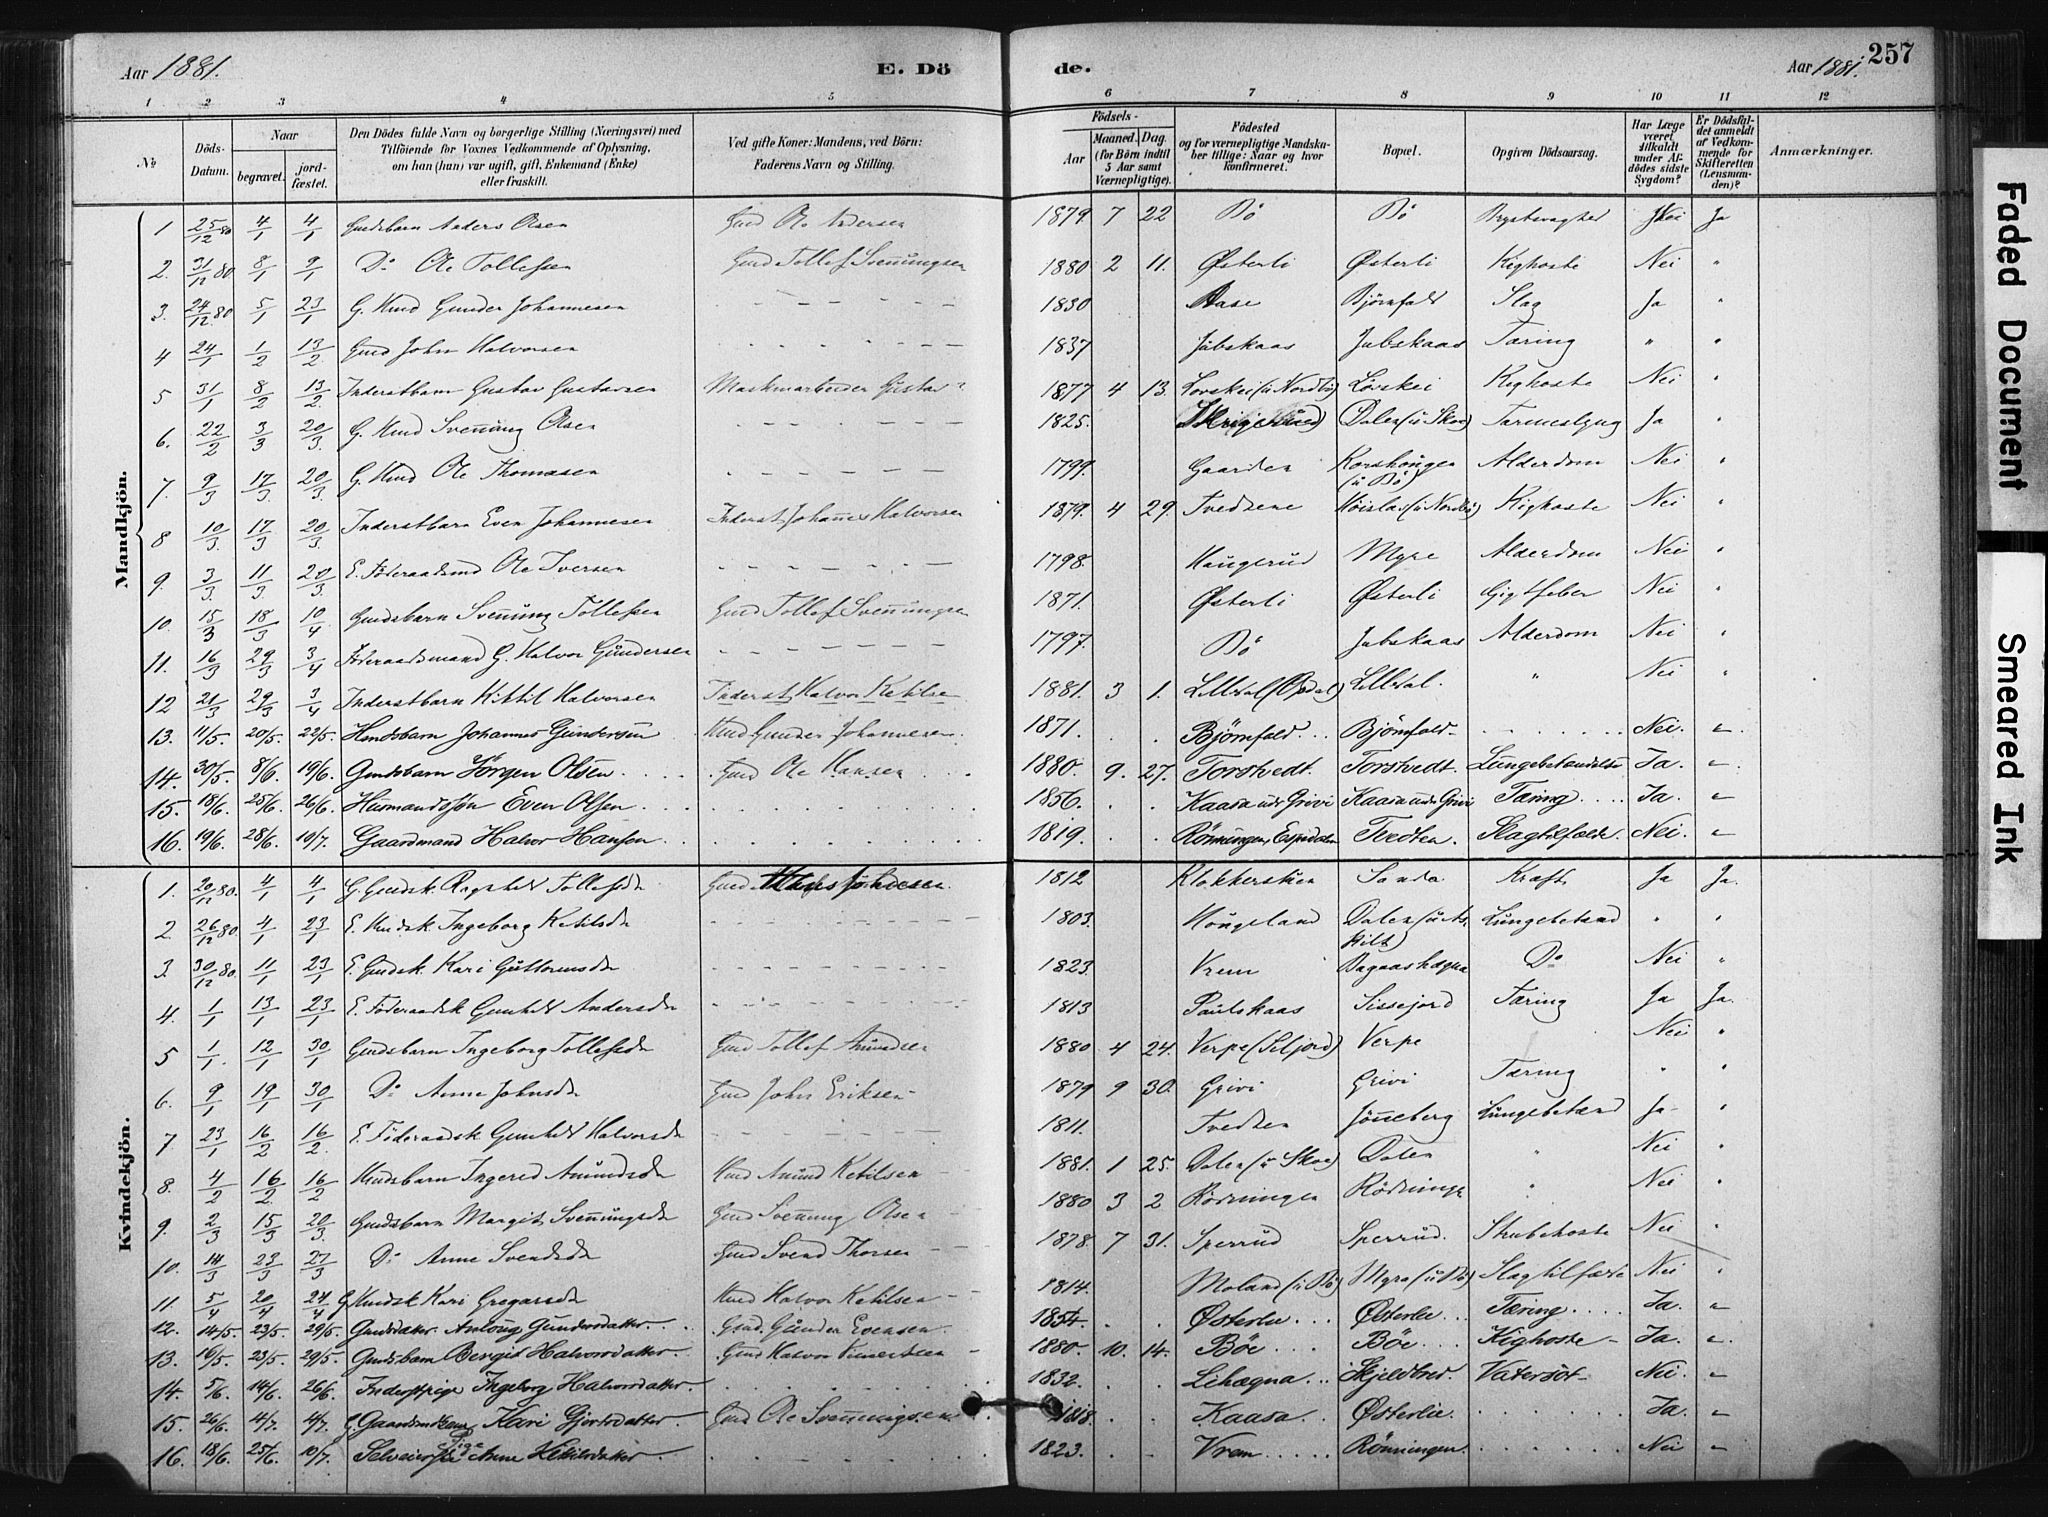 Aar 1881. E. Dö de. Aar 1881. 257
1 2 3 4 5 6 7 8 9 10 11 12
№ Döds-Datum. Naar begravet. jord-fæstet. Den Dödes fulde Navn og borgerlige Stilling (Næringsvei) med Tilföiende for Voxnes Vedkommende af Oplysning, om han (hun) var ugift, gift, Enkemand (Enke) eller fraskilt. Ved gifte Koner: Mandens, ved Börn: Faderens Navn og Stilling. Födsels- Aar Maaned. Dag. (for Börn indtil 5 Aar samt Værnepligtige). Födested og for værnepligtige Mandskaber tillige: Naar og hvor konfirmeret. Bopæl. Opgiven Dödsaarsag. Har Læge været tilkaldt under Afdödes sidste Sygdom? Er Dödsfaldet anmeldt af Vedkommende for Skifteretten (Lensmanden)? Anmærkninger.
Mandkjön.
1 25/12 80 4/1 4/1 Gmdsbarn Anders Olsen Gmd Ole Andersen 1879 7 22 Bö Bö Nei Ja
2. 31/12 80 8/1 9/1 Do Ole Tollefsen Gmd Tollef Svennungsen 1880 2 11. Østerli Østerli Kighoste Nei "
3. 24/12 80 5/1 23/1 G. Hmd Gunder Johannesen 1830 Aase Bjørnfald Slag Ja "
4 24/1 1/2 13/2 Gmd John Halvorsen 1837 Jubskaas Jubskaas Tæring " "
5 31/1 8/2 13/2 Inderstbarn Gustav Gustavsen Gustav " 1877 4 13. Lovskei (u Nordbö) Løvskei Kighoste Nei "
6. 22/2 3/3 20/3 G. Hmd Svennung Olsen 1825. Dalen (u Skoe) Tarmeslyng Ja "
7. 9/3 17/3 20/3 G. Hmd Ole Thomasen 1799. Gaarden Korshougen (u Bö) Alderdom Nei "
8 10/3 17/3 20/3 Inderstbarn Even Johannesen Inderst Johannes Halvorsen 1879. 4 29. Tvedtene (u Nordbö) Kighoste Nei "
9. 3/3 11/3 20/3 E. Föderaadsmd Ole Iversen 1798. Haugerud Myre Alderdom Nei "
10. 15/3 18/3 10/4 Gmdsbarn Svennung Tollefsen Gmd Tollef Svennungsen 1871. Østerli Østerli Gigtfeber Nei "
11. 16/3 29/3 3/4 Föderaadsmand G. Halvor Gundersen 1797. Bö Jubskaas Alderdom Nei "
12 21/3 29/3 3/4 Inderstbarn Kittil Halvorsen Inderst Halvor Ketilsen 1881. 3 1. Lilledal (Opdal) Lilledal. " Nei "
13. 11/5. 20/5. 22/5. Hmdsbarn Johannes Gundersen Hmd Gunder Johannesen. 1871. Bjørnfald. Bjørnfald Nei. "
14. 30/5. 8/6. 19/6. Gmdsbarn Jörgen Olsen Gmd Ole Hansen 1880. 9. 27. Torstvedt. Torstvedt. Lungebetændelse Ja. "
15. 18/6. 25/6. 26/6. Husmandssön Even Olsen 1856. Kaasa udr Grivi Kaasa udr Grivi Tæring Ja. "
16. 19/6. 28/6. 10/7. Gaardmand Halvor Hansen 1819. Rönningen, Espedalen Tvedten Slagtilfælde. Nei. "
Kvindekjön.
1. 20/12 80. 4/1 4/1 G. Gmdsk. Ragnhild Tollefsdr Gmd 1812 Klokkerstuen Sanda Kræft Ja Ja.
2 26/12 80. 4/1 23/1 E. Hmdsk Ingeborg Ketilsdr 1803. Hougeland Dalen Lungebetænd " "
3. 30/12 80. 11/1 23/1 E. Gmdsk. Kari Guttormsdr 1823. Vrem Do Nei "
4. 1/1 13/1 23/1 E. Föderaadsk Gunhild Andersdr 1813 Paulskaas Sissejord Tæring Ja Ja.
5 1/1. 12/1 30/1 Gmdsbarn Ingeborg Tollefsdr Gmd Tollef Amundsen 1880 4 24. Verpe (Seljord) Verpe Nei "
6. 9/1 19/1 30/1 Do Anne Johnsdr Gmd John Eriksen 1879 9 30. Grivi Grivi Tæring " "
7. 23/1 16/2 16/2. E. Föderaadsk Gunhild Halvorsdr 1811. Tvedten Jönneberg Lungebetænd Ja "
8. 4/2 16/2. 16/2 Hmdsbarn Ingered Amundsdr Hmd Amund Ketilsen 1881. 1 25. Dalen (u Skoe) Dalen " Nei "
9. 2/3 15/3 20/3 Gmdsbarn Margit Svennungsdr Gmd Svennung Olsen 1880 3 2 Rödningen Rödninge " Nei "
10. 14/3 23/3 27/3 Do Anne Svendsdr Gmd Svend Thorsen 1878. 7 31. Sperrud Sperrud. Strubehoste Nei "
11. 5/4 20/4 24/4 G. Hmdsk Kari Gregarsdr Hmd Halvor Ketilsen 1814. Moland (u Bö) Myra (u Bö) Slagtilfælde Nei "
12. 14/5. 23/5. 29/5. Gmdsdatter Anlaug Gundersdatter. Gmd. Gunder Evensen. 1854. Østerlie Østerlie Tæring Ja. "
13. 16/5. 23/5. 29/5. Gmdsbarn Bergit Halvorsdatter Gmd Halvor 1880. 10. 14. Böe Böe Kighoste Ja. "
14. 5/6. 14/6. 26/6. Inderstpige Ingeborg Halvorsdatter. 1832. Lihægna Skjeldbred Vatersot Nei. "
15. 26/6. 4/7. 4/7. G. Kari Gjertsdatter. Gmd Ole Svennungsen 1818. Kaasa. Østerlie. Ja. "
16. 18/6. 25/6. 10/7. Selveier Pige Anne Kittilsdatter 1823. Vrem Rönningen. Nei "
Faded Document
Smeared Ink